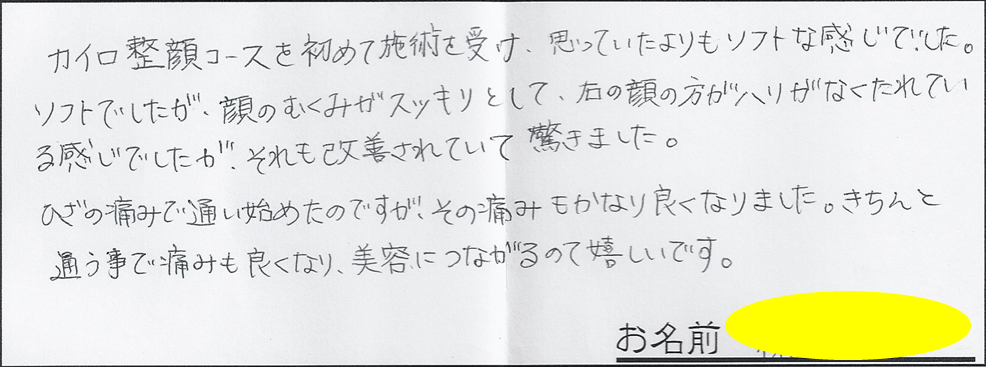 カイロ整顔コースを初めて施術を受け、思っていたよりもソフトな感じでした。
ソフトでしたが、顔のむくみがスッキリとして、右の顔の方がハリがなくたれてい
る感じでしたが、それも改善されていて驚きました。
ひざの痛みで通い始めたのですが、その痛みもかなり良くなりました。きちんと
通う事で痛みも良くなり、美容につながるので嬉しいです。
お名前